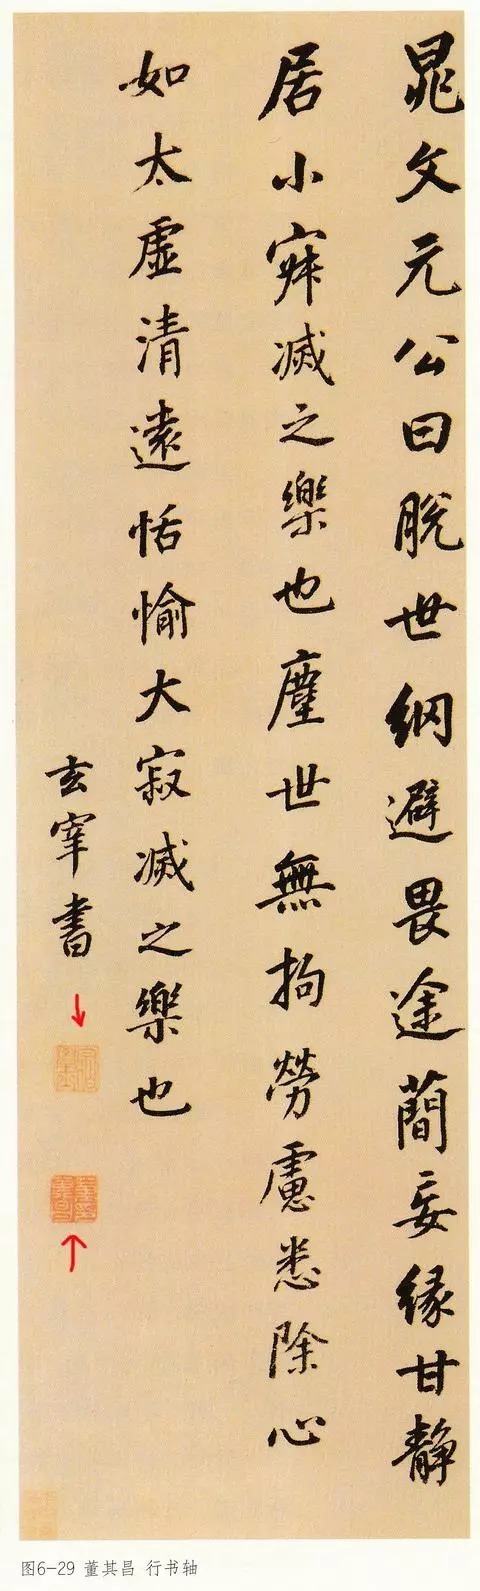 晁文元公曰脫世網避畏途蕳妄緣甘静
居小寂滅之樂也塵世無拘勞慮悉除心
如太虛清遠恬愉大寂滅之樂也
玄宰書
图6-29 董其昌 行书轴